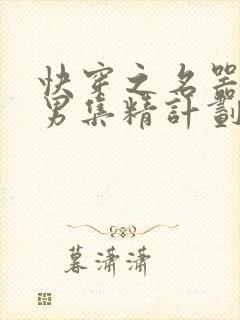 快穿之名器
男集精計劃
暮瀟瀟